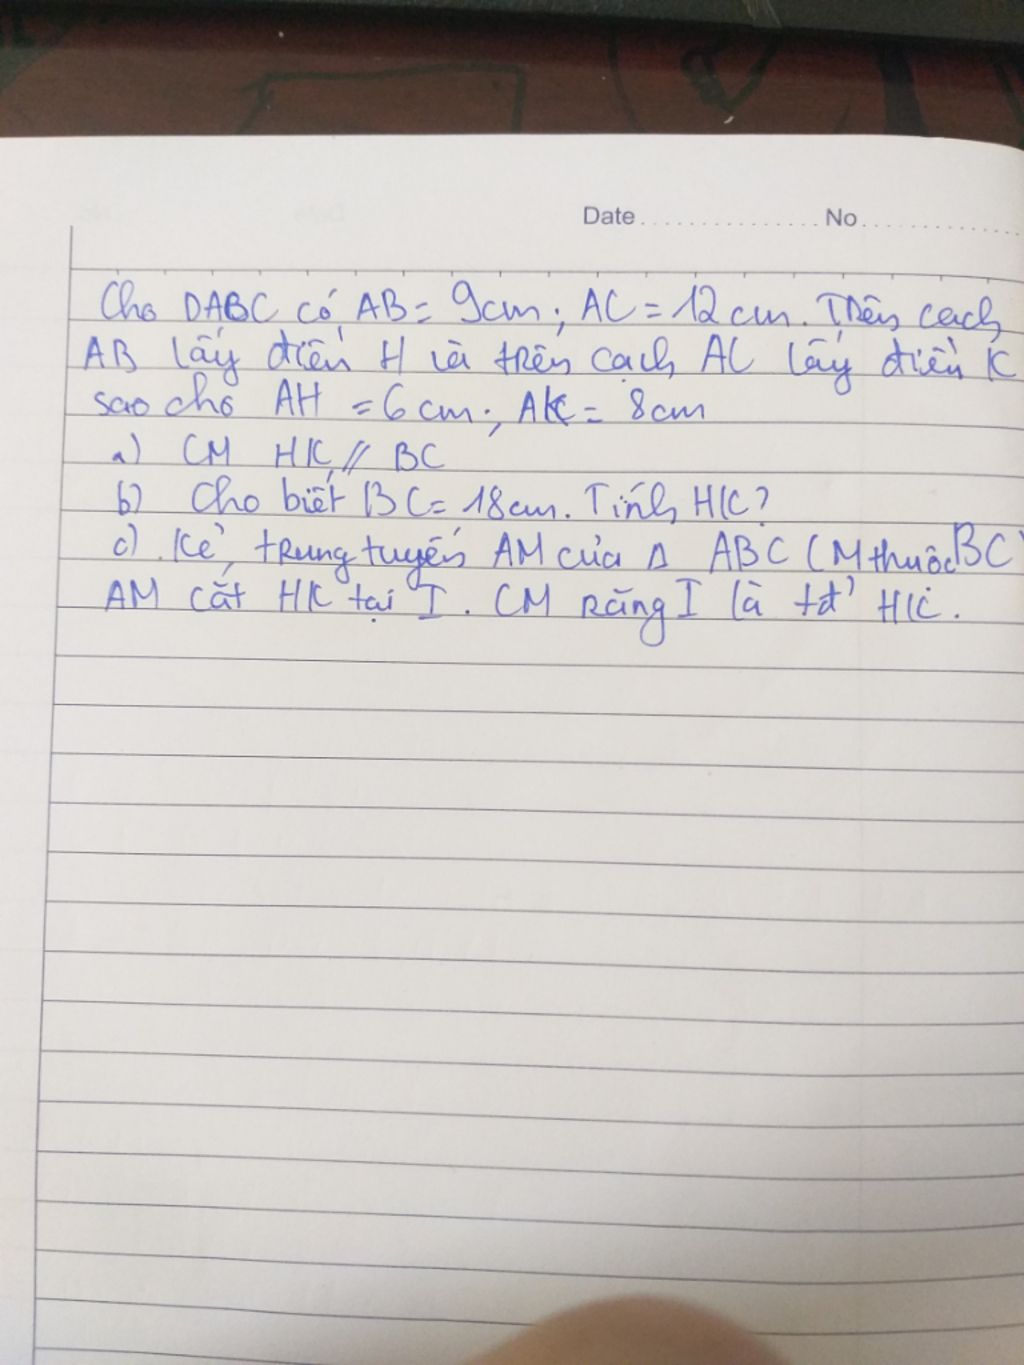 Date ............... No ...............
Cho ΔABC có AB = 9cm; AC = 12cm. Trên cạch
AB lấy điển H và trên cạch AC lấy điển K
sao cho AH = 6cm; AK = 8cm
a) CM HK // BC
b) Cho biết BC = 18cm. Tính HK?
c) Kẻ trung tuyến AM của Δ ABC (M thuộc BC)
AM cắt HK tại I. CM rằng I là tđ' HK.